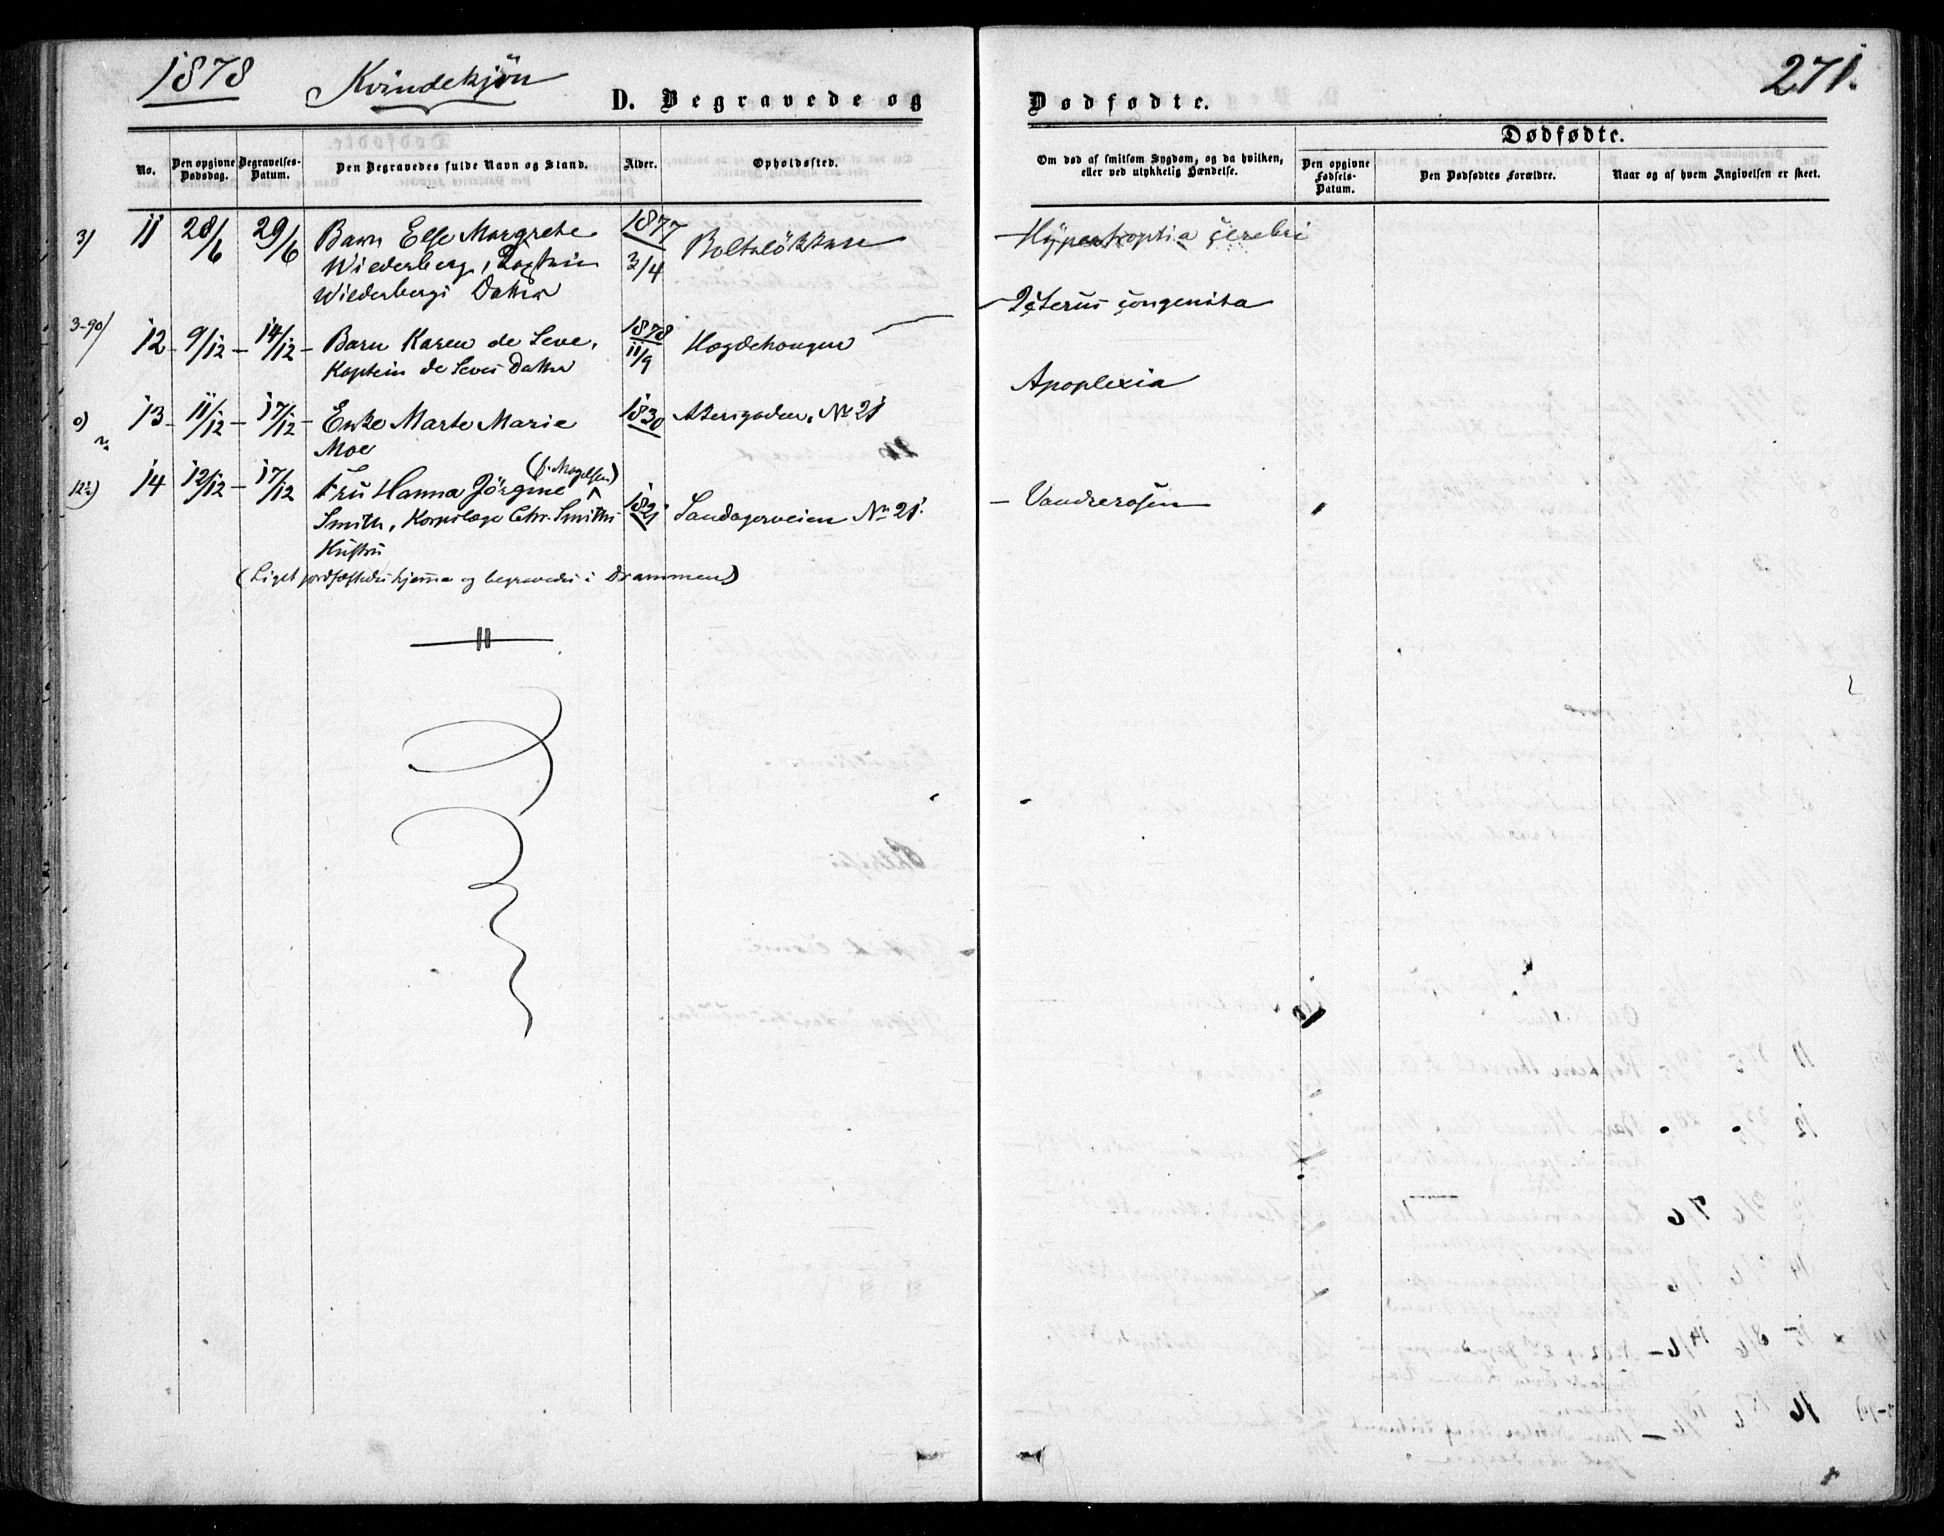 1878 Kvindekjön
D. Begravede og
Dødfødte.
271.
No.
Den opgivne Dødsdag.
Begravelses-Datum.
Den Begravedes fulde Navn og Stand.
Alder.
Opholdssted.
Om død af smitsom Sygdom, og da hvilken,
eller ved ulykkelig Hændelse.
Dødfødte.
Den opgivne Fødsels-Datum.
Den Dødfødtes Forældre.
Naar og af hvem Angivelsen er skeet.
3) 11 28/6 29/6 Barn Else Margrete 1877 3/4 Boltelökken
Wiederberg, Kaptein
Wiederbergs Datter
Hypertroptia cerebri
3-90) 12 - 9/12 - 14/12 - Barn Karen de Seve, 1878 11/9 Hægdehougen
Kaptein de Seves Datter
Icterus congenita
0) 13 - 11/12 - 17/12 - Enke Marte Marie 1830 Akersgaden, No 21
Moe
Apoplexia
12½) 14 12/12 - 17/12 Fru Hanna Jörgine (f. Mogelsen)
Smith, Korpslæge Chr. Smiths 1821 Sandagerveien No 21.
Hustru
- Vandrerosen
(Liget jordfæstedes hjemme og begravedes i Drammen)